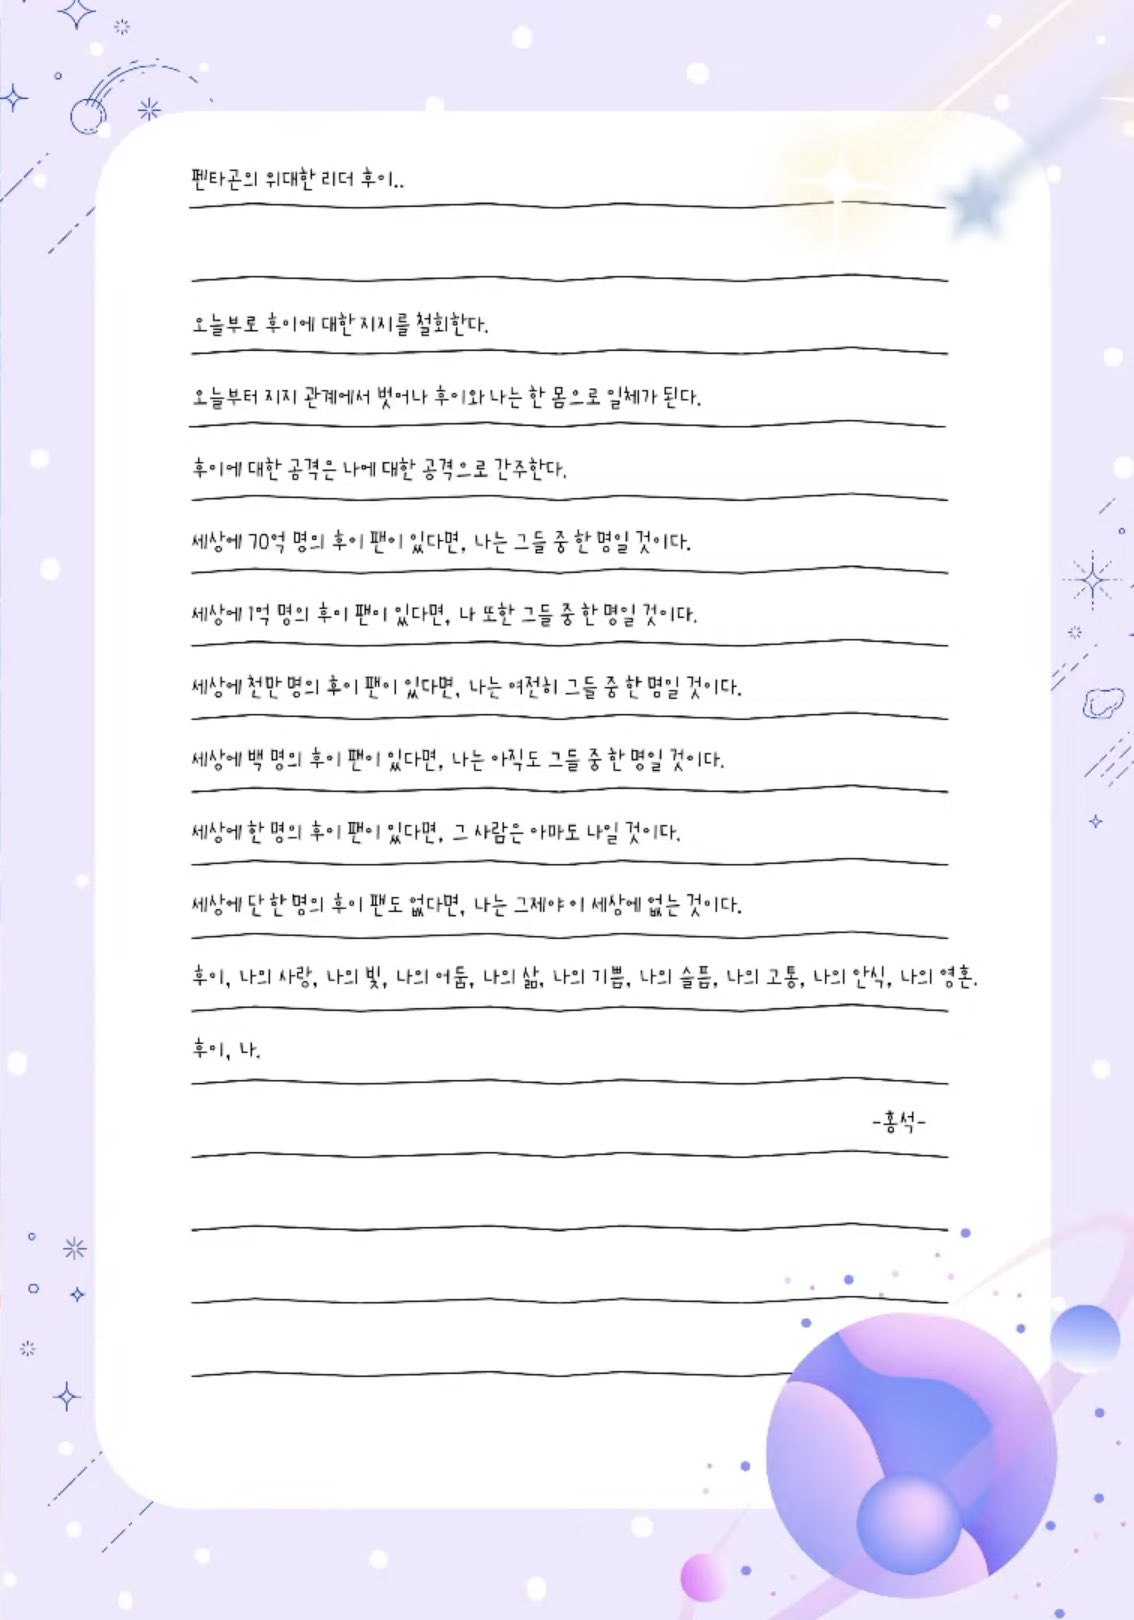 펜타곤의 위대한 리더 후이..
오늘부로 후이에 대한 지지를 철회한다.
오늘부터 지지 관계에서 벗어나 후이와 나는 한 몸으로 일체가 된다.
후이에 대한 공격은 나에 대한 공격으로 간주한다.
세상에 70억 명의 후이 팬이 있다면, 나는 그들 중 한 명일 것이다.
세상에 1억 명의 후이 팬이 있다면, 나 또한 그들 중 한 명일 것이다.
세상에 천만 명의 후이 팬이 있다면, 나는 여전히 그들 중 한 명일 것이다.
세상에 백 명의 후이 팬이 있다면, 나는 아직도 그들 중 한 명일 것이다.
세상에 한 명의 후이 팬이 있다면, 그 사람은 아마도 나일 것이다.
세상에 단 한 명의 후이 팬도 없다면, 나는 그제야 이 세상에 없는 것이다.
후이, 나의 사랑, 나의 빛, 나의 어둠, 나의 삶, 나의 기쁨, 나의 슬픔, 나의 고통, 나의 안식, 나의 영혼.
후이, 나.
-홍석-